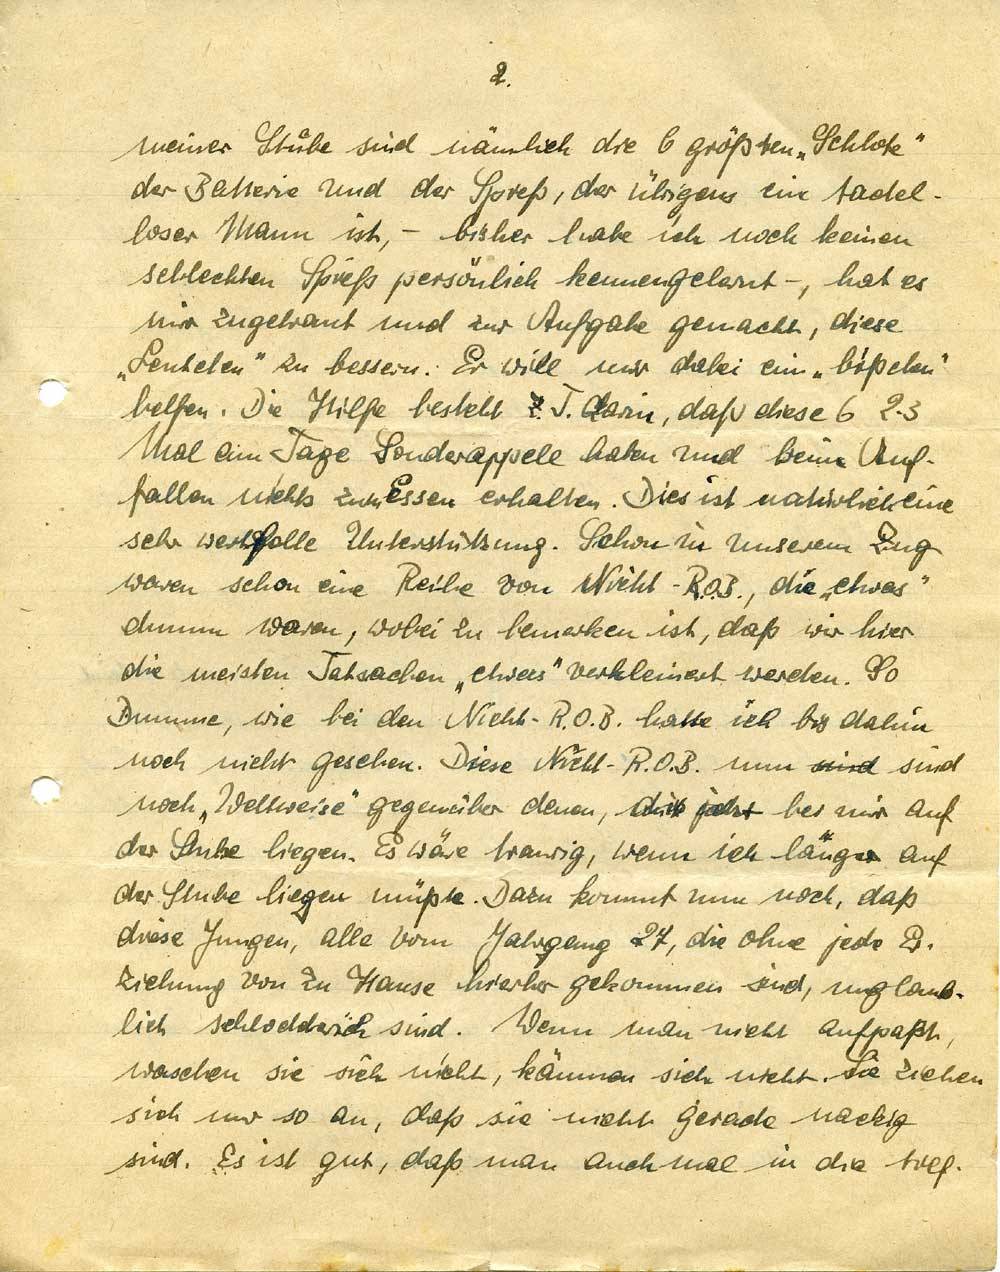 2.
meiner Stube sind nämlich die 6 größten „Schlote"
der Batterie und der Spieß, der übrigens ein tadel-
loser Mann ist, – bisher habe ich noch keinen
schlechten Spieß persönlich kennengelernt –, hat es
mir zugetraut und zur Aufgabe gemacht, diese
„Leutchen" zu bessern. Er will mir dabei ein „bißchen"
helfen. Die Hilfe besteht z. T. darin, daß diese 6 2-3
Mal am Tage Sonderappelle haben und beim Auf-
fallen nichts zum Essen erhalten. Dies ist natürlich eine
sehr wertvolle Unterstützung. Schon in unserem Zug
waren schon eine Reihe von Nicht-R.O.B., die „etwas"
dumm waren, wobei zu bemerken ist, daß wir hier
die meisten Tatsachen „etwas" verkleinert werden. So
Dumme, wie bei den Nicht-R.O.B. hatte ich bis dahin
noch nicht gesehen. Diese Nicht-R.O.B. nun sind sind
noch „Weltweise" gegenüber denen, die jetzt bei mir auf
der Stube liegen. Es wäre traurig, wenn ich länger auf
der Stube liegen müßte. Dazu kommt nun noch, daß
diese Jungen, alle vom Jahrgang 27, die ohne jede Er-
ziehung von zu Hause hierher gekommen sind, unglaub-
lich schlodderich sind. Wenn man nicht aufpaßt,
waschen sie sich nicht, kämmen sich nicht. Sie ziehen
sich nur so an, daß sie nicht gerade nackig
sind. Es ist gut, daß man auch mal in die